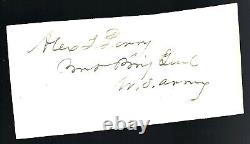 Alex J Perry
Brvt Brig Genl
U.S. Army